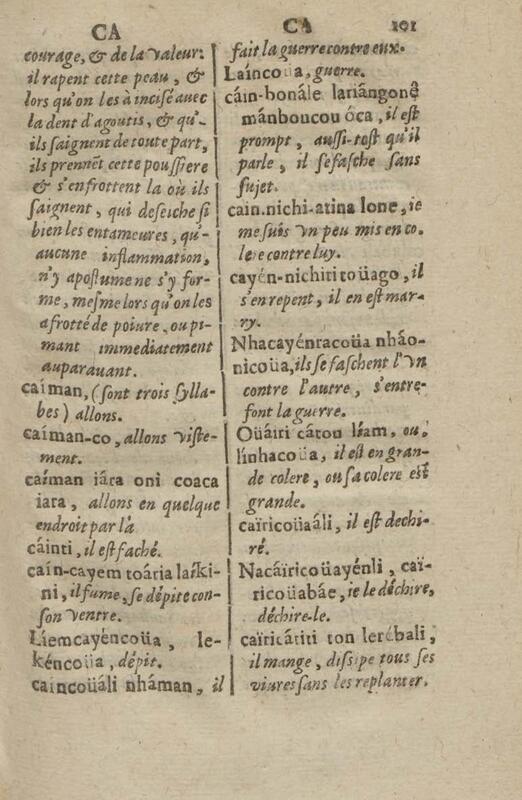 CA
courage, & de la valeur:
il rapent cette peau, &
lors qu'on les à incisé auec
la dent d'agoutis, & qu'-
ils saignent de toute part,
ils prennẽt cette poussiere
& s'enfrottent la où ils
saignent, qui deseiche si
bien les entameures, qu'-
aucune inflammation,
n'y apostume ne s'y for-
me, mesme lors qu'on les
a frotté de poiure, ou pi-
mant immediatement
auparauant.
caíman, (sont trois sylla-
bes) allons.
caíman-co, allons viste-
ment.
caíman iára oni coaca
iara, allons en quelque
endroit par là
cáinti, il est faché.
caín-cayem toária laíki-
ni, il fume, se dépite con-
son ventre.
Líemcayéncoüa, le-
kéncoüa, dépit.
caincoüáli nháman, il
CA 101
fait la guerre contre eux.
Laíncoüa, guerre.
cáin-bonále lariàngonê
mánboucou óca, il est
prompt, aussi-tost qu'il
parle, il se fasche sans
sujet.
cain-nichi-atina lone, ie
me suis vn peu mis en co-
lere contre luy.
cayén-nichiti toüago, il
s'en repent, il en est mar-
ry.
Nhacayénracoüa nháo-
nicoüa, ils se faschent l'vn
contre l'autre, s'entre-
font la guerre.
Oüáiti cáton líam, ou,
línhacoüa, il est en gran-
de colere, ou sa colere est
grande.
caïricoüaáli, il est dechi-
ré.
Nacáïricoüayénli, caï-
ricoüabáe, ie le déchire,
déchire-le.
caïricátiti ton lerébali,
il mange, dissipe tous ses
viures sans les replanter.